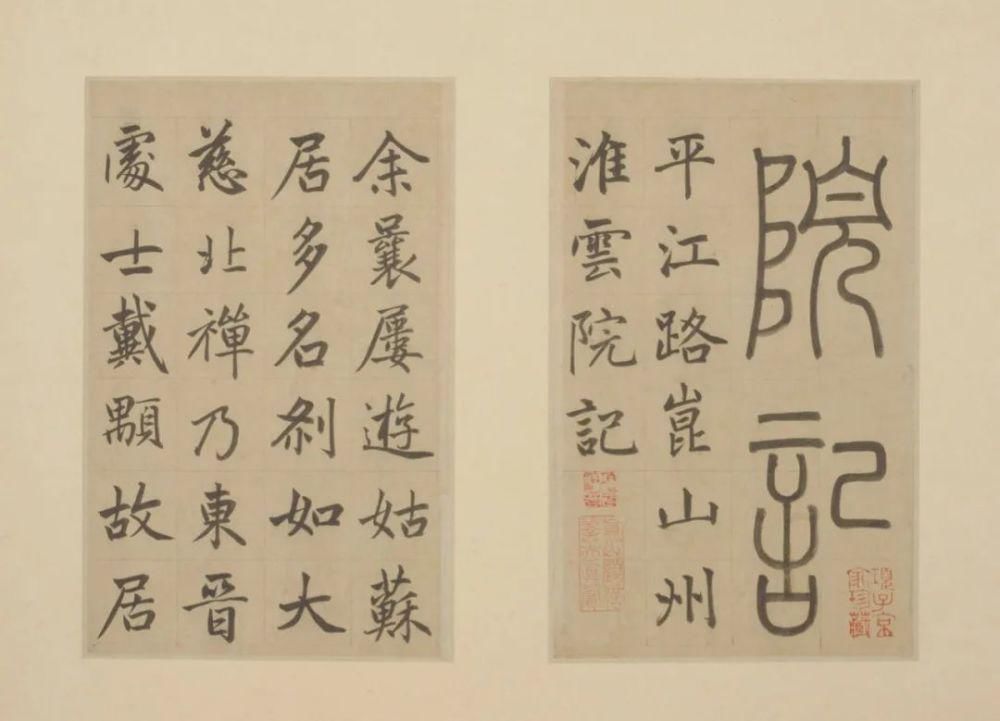 院記
平江路崑山州
淮雲院記
項子京
家珍藏
余曩屢遊姑蘇
居多名刹如大
慈北禪乃東晉
處士戴顒故居